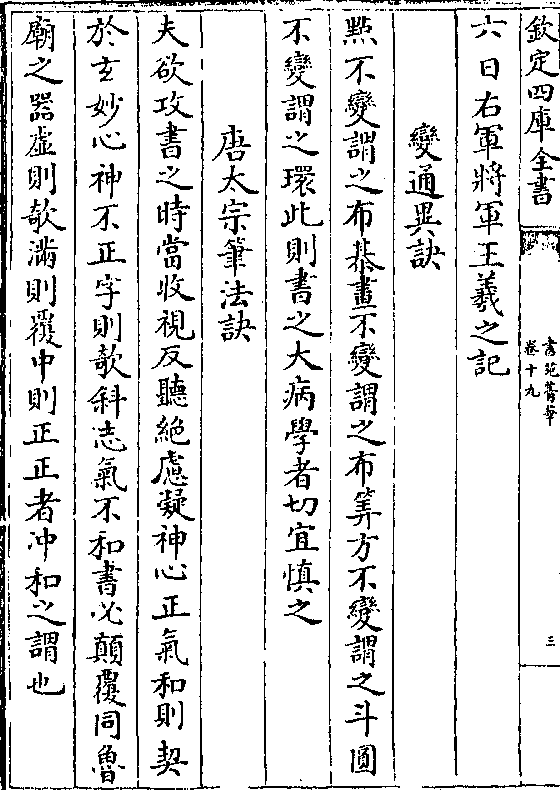 欽定四庫全書
書苑菁華
卷十九
三
六日右軍將軍王羲之記
變通異訣
㸃不變謂之布棊畫不變謂之布筭方不變謂之斗圓
不變謂之環此則書之大病學者切宜慎之
唐太宗筆法訣
夫欲攻書之時當收視反聽絶慮凝神心正氣和則契
於𤣥妙心神不正字則欹斜志氣不和書必顛覆同魯
廟之器虛則欹滿則覆中則正正者冲和之謂也